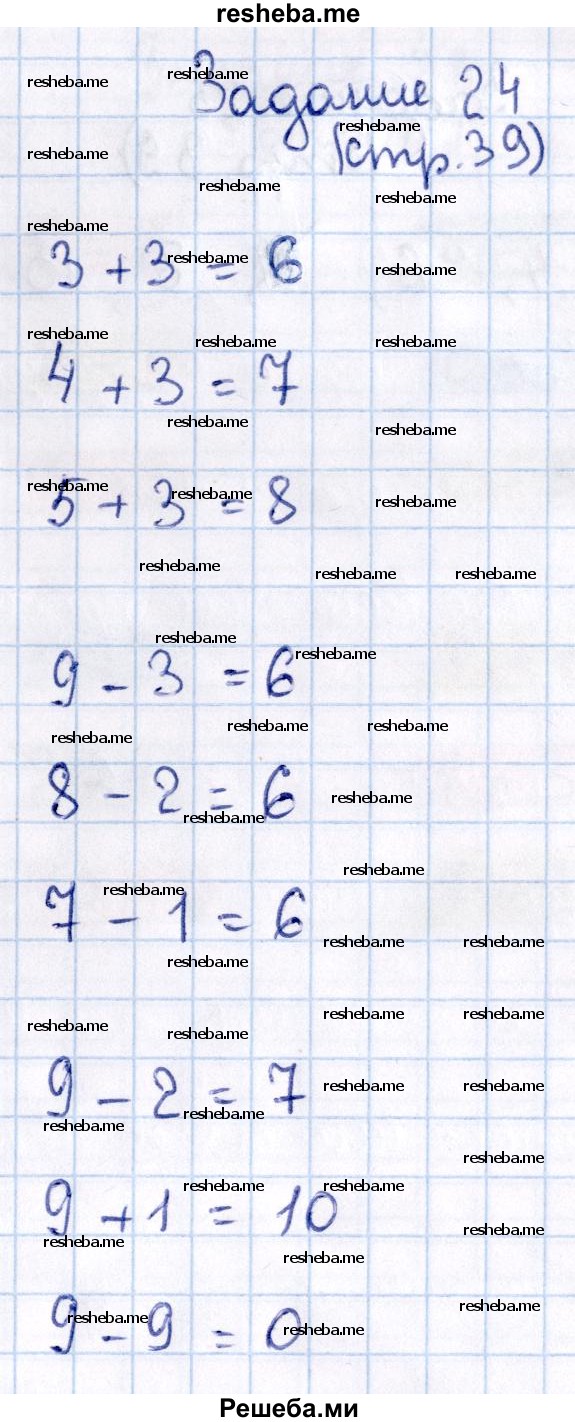 resheba.me
Задание 24
(стр. 39)
3 + 3 = 6
4 + 3 = 7
5 + 3 = 8
9 - 3 = 6
8 - 2 = 6
7 - 1 = 6
9 - 2 = 7
9 + 1 = 10
9 - 9 = 0
Решеба.ми